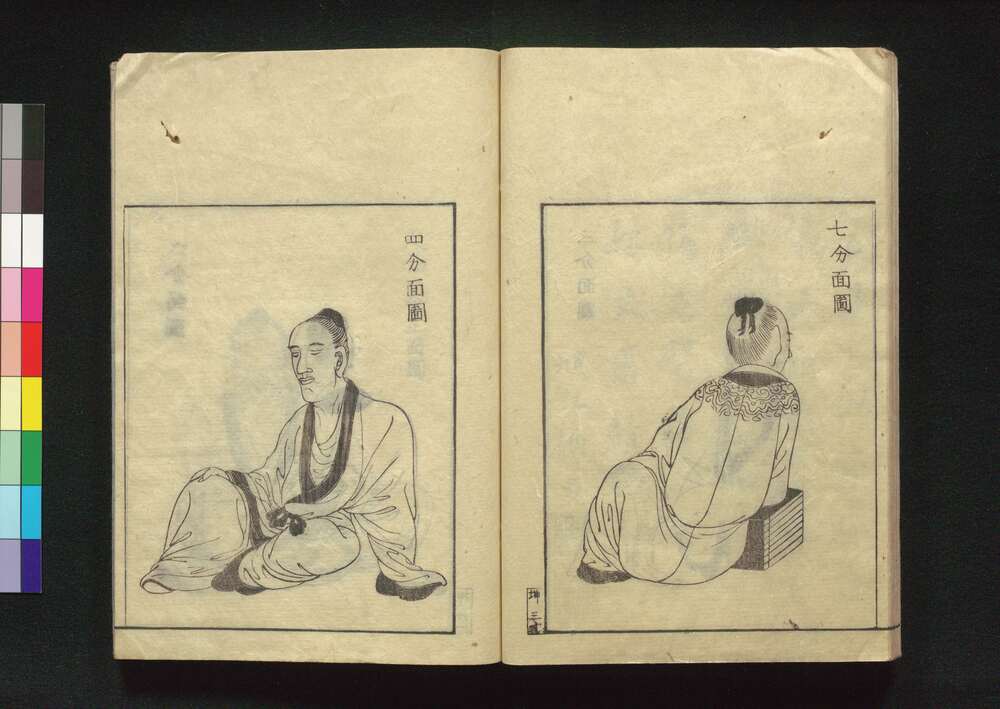 七分面圖
四分面圖
坤 三